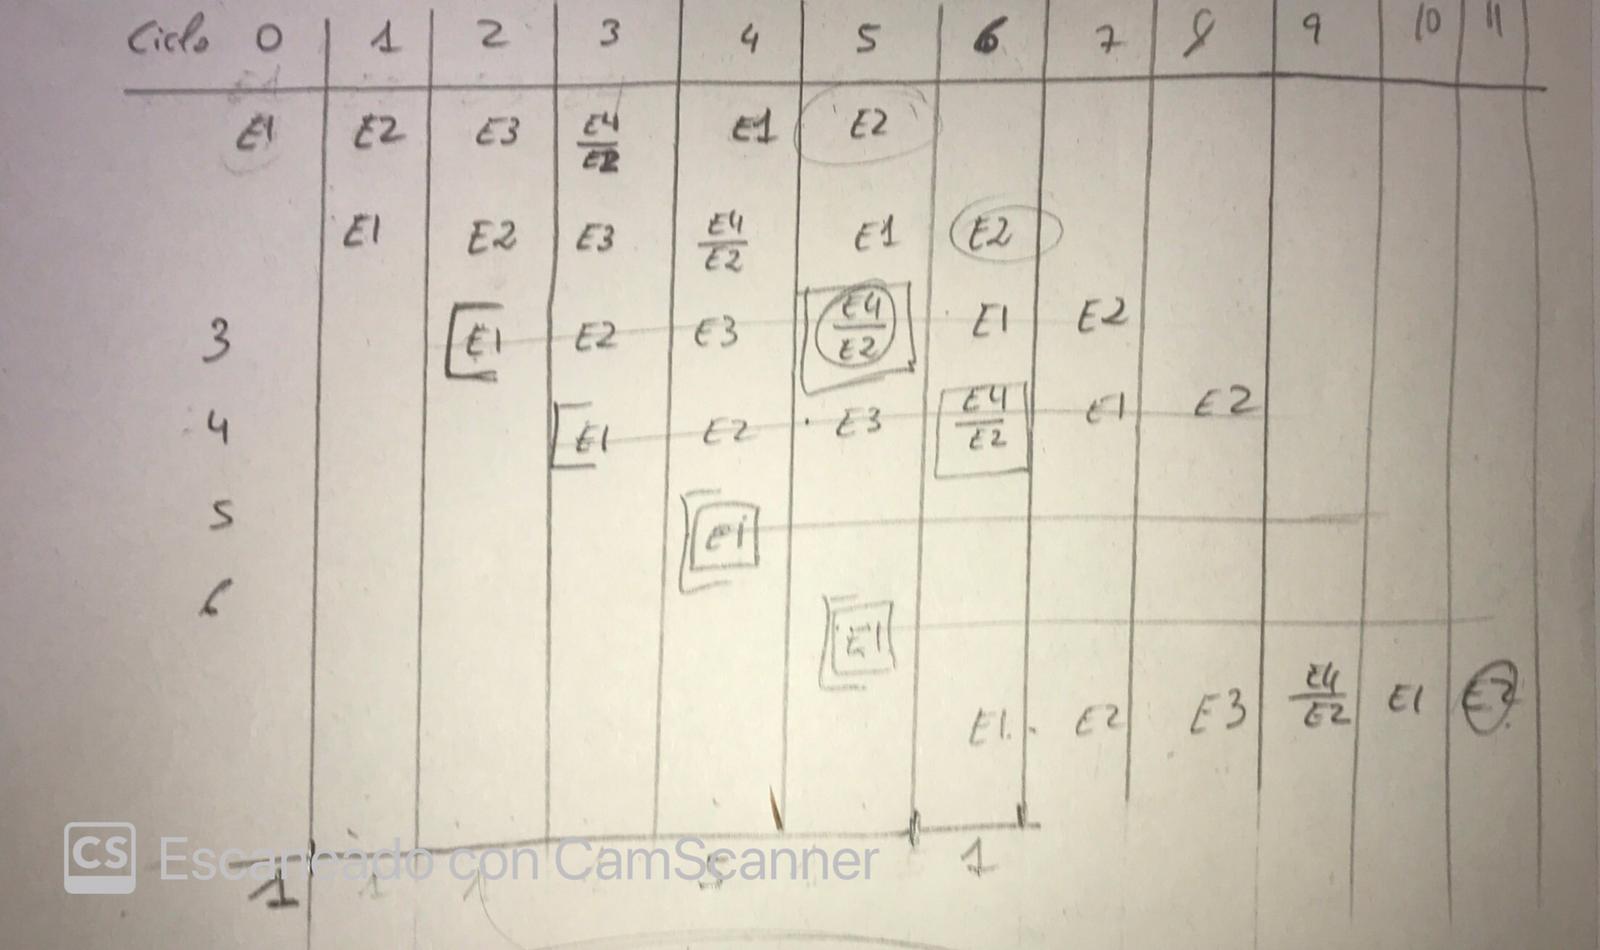 Ciclo 0 1 2 3 4 5 6 7 8 9 10 11
E1 E2 E3 E4 E1 E2
E2
E1 E2 E3 E4 E1 E2
E2
3 E1 E2 E3 E4 E1 E2
E2
4 E1 E2 E3 E4 E1 E2
E2
5 E1
6 E1
E1 E2 E3 E4 E1 E2
E2
1 1 1 5 1
CS Escaneado con CamScanner